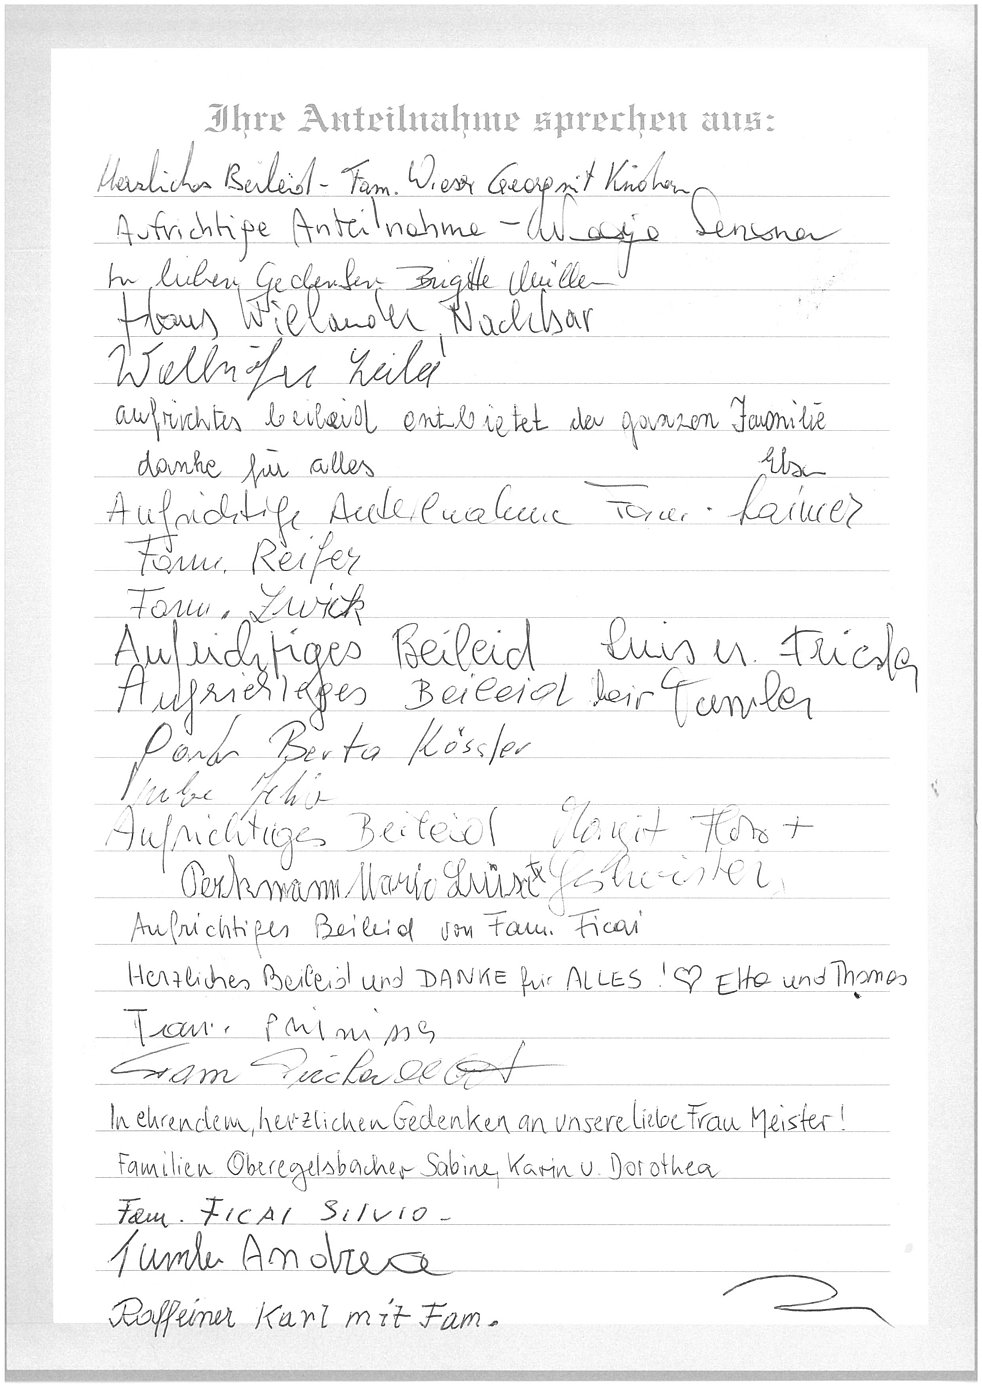 Ihre Anteilnahme sprechen aus:
Herzliches Beileid - Fam. Wieser Georg mit Kindern
Aufrichtige Anteilnahme -
In lieben Gedenken Brigitte Müller
Hans Wielander, Nachbar
aufrichtes beileid entbietet der ganzen Familie
danke für alles
Aufrichtige Anteilnahme Fam. Laimer
Fam. Reifer
Fam. Zwick
Aufrichtiges Beileid Luis u. Frieda
Aufrichtiges Beileid Tumler
Berta Kössler
Aufrichtiges Beileid Margit Flora +
Perkmann Mario Luise + Geschwister
Aufrichtiges Beileid von Fam. Ficai
Herzliches Beileid und DANKE für ALLES ! ♡ Etta und Thomas
Fam.
Fam
In ehrendem, herzlichen Gedenken an unsere liebe Frau Meister!
Familien Oberegelsbacher Sabine, Karin u. Dorothea
Fam. FICAI SILVIO -
Tumler Andrea
Raffeiner Karl mit Fam.